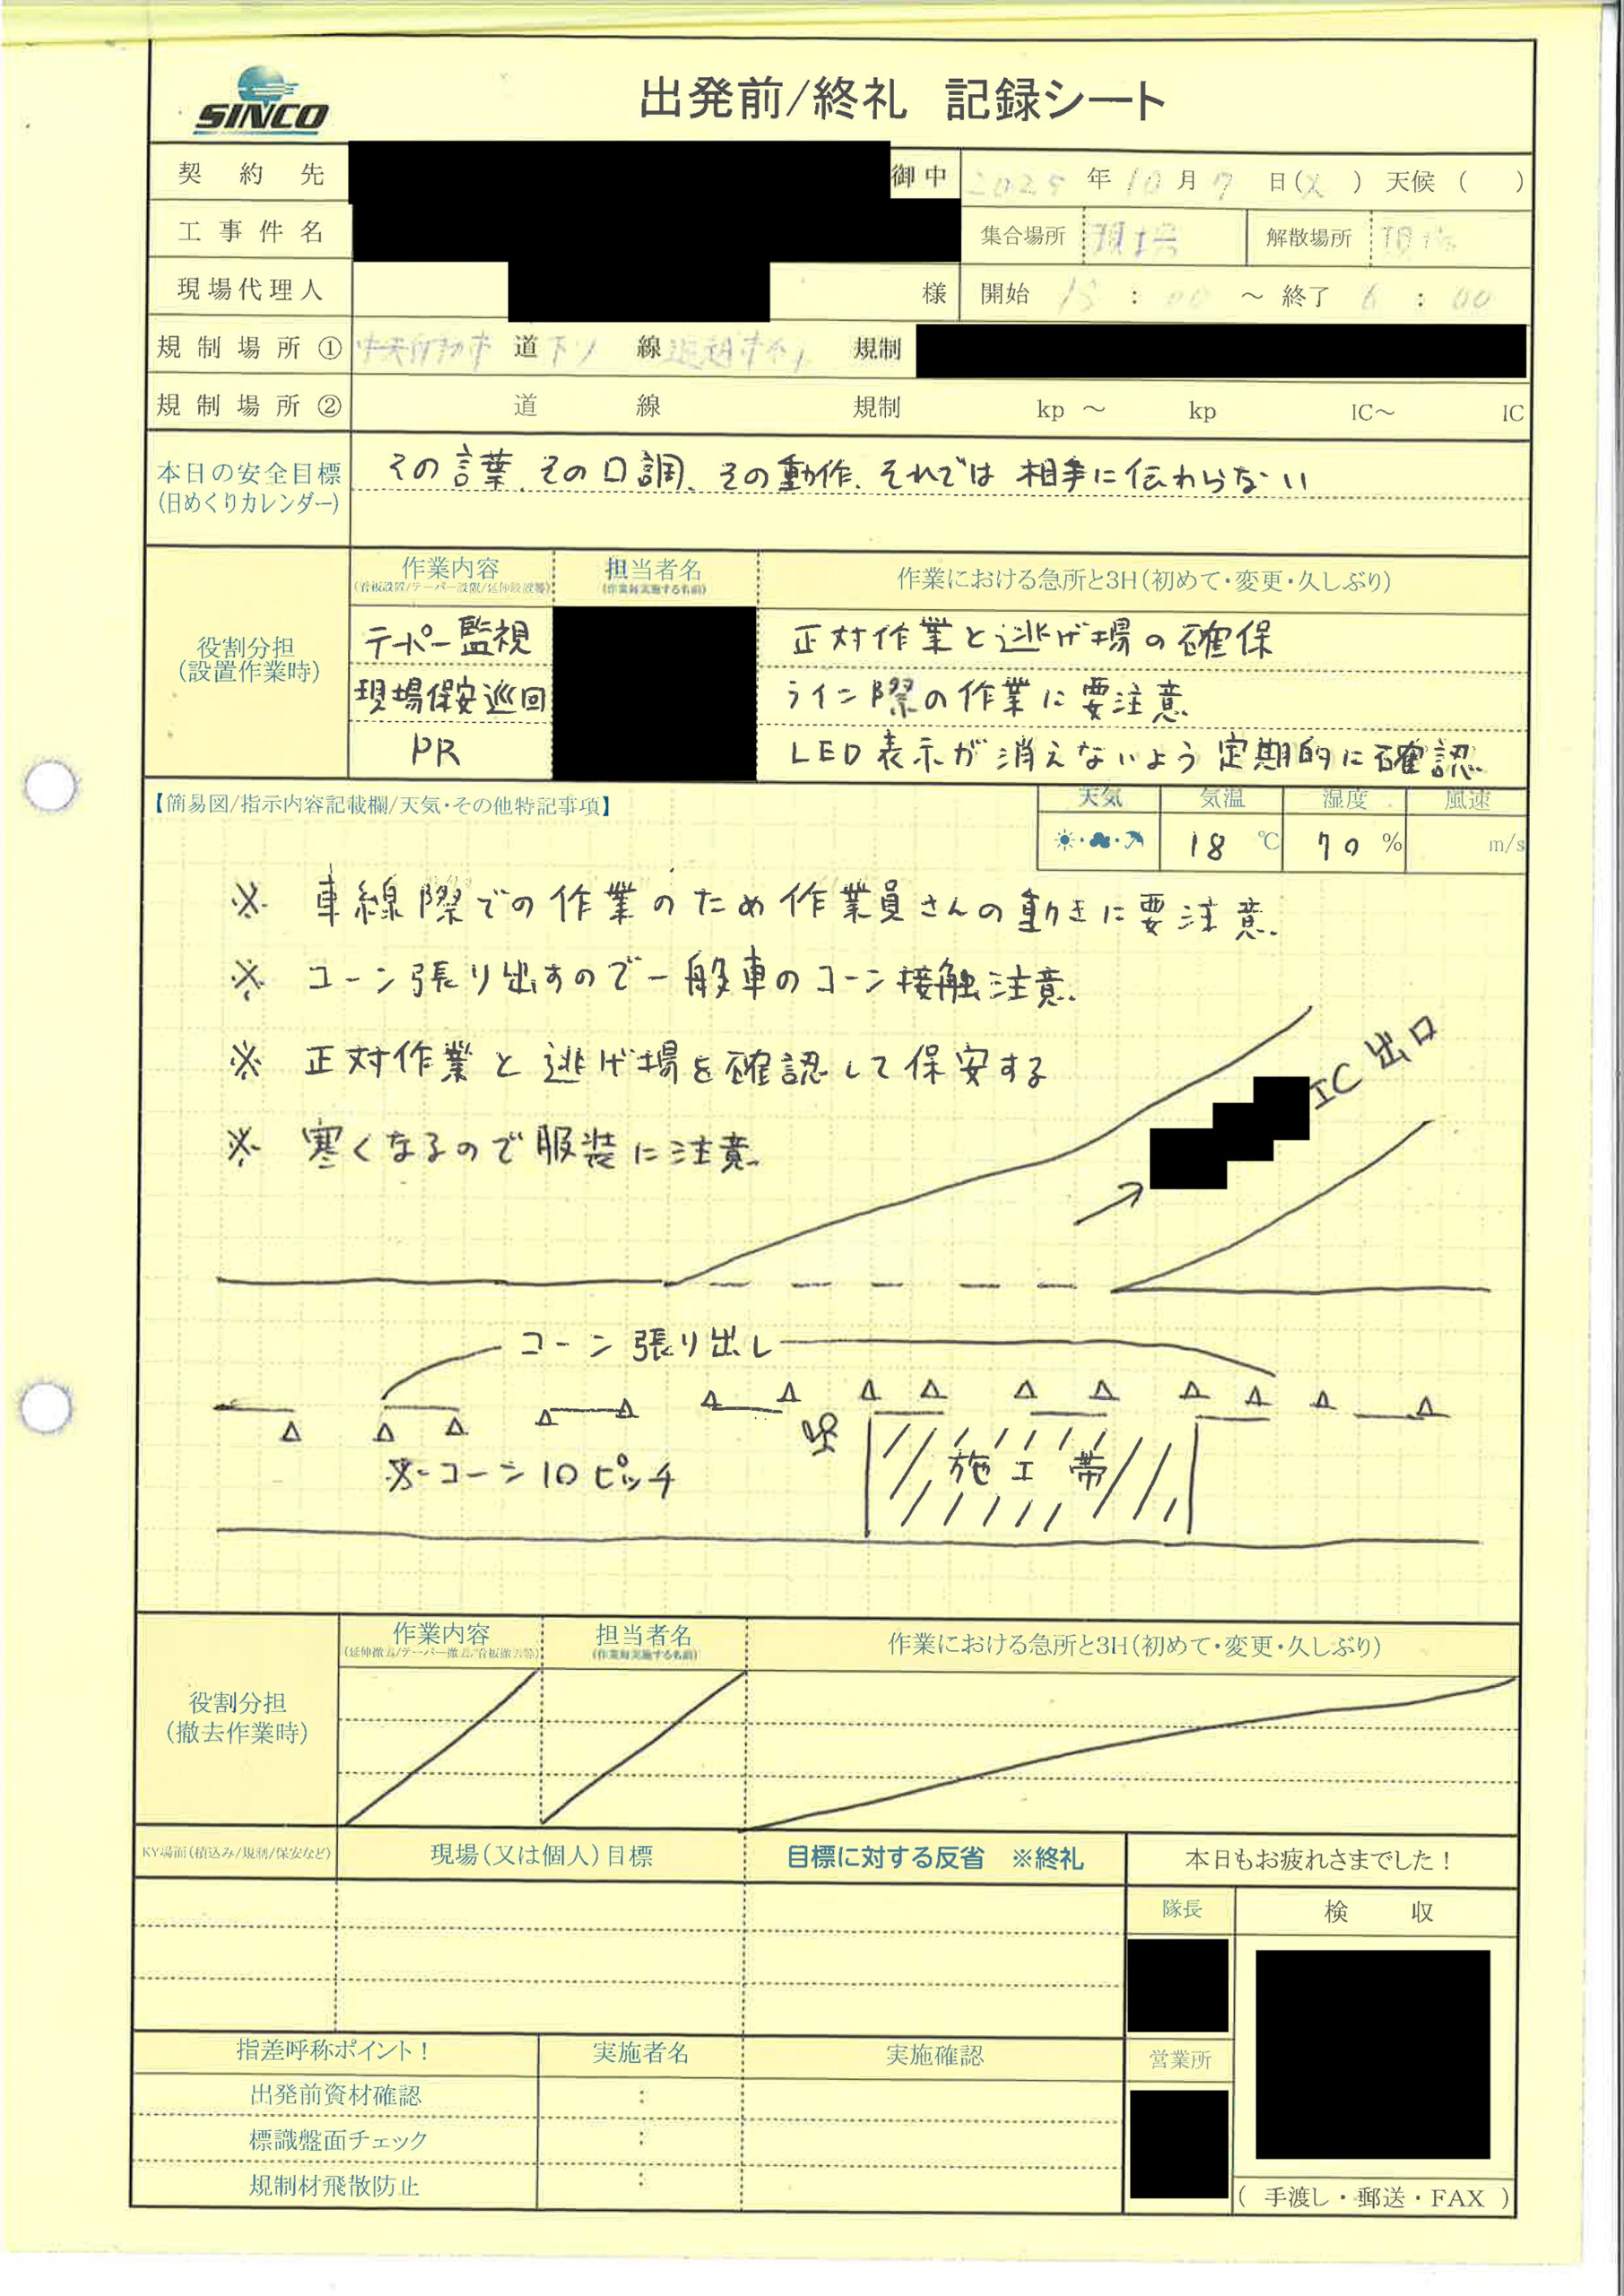 SINCO
出発前/終礼 記録シート
契約先 御中 2025年10月7日(火) 天候( )
工事件名 集合場所 現場 解散場所 現場
現場代理人 様 開始 :00 ～ 終了 6:00
規制場所① 中央自動車道 下り線 規制
規制場所② 道 線 規制 kp ～ kp IC～ IC
本日の安全目標
(日めくりカレンダー)
その言葉、その口調、その動作、それでは相手に伝わらない
作業内容 担当者名 作業における急所と3H(初めて・変更・久しぶり)
(看板設置/テーパー設置/延伸設置等) (作業毎実施する名前)
役割分担
(設置作業時)
テーパー監視 正対作業と逃げ場の確保
現場保安巡回 ライン際の作業に要注意
PR LED表示が消えないよう定期的に確認
【簡易図/指示内容記載欄/天気・その他特記事項】
天気 気温 湿度 風速
18 ℃ 70 % m/s
※ 車線際での作業のため作業員さんの動きに要注意.
※ コーン張り出すので一般車のコーン接触注意.
※ 正対作業と逃げ場を確認して保安する
※ 寒くなるので服装に注意
IC 出口
コーン張り出し
※コーン10ピッチ
施工帯
作業内容 担当者名 作業における急所と3H(初めて・変更・久しぶり)
(延伸撤去/テーパー撤去/看板撤去等) (作業毎実施する名前)
役割分担
(撤去作業時)
KY場面(積込み/規制/保安など) 現場(又は個人)目標 目標に対する反省 ※終礼 本日もお疲れさまでした！
隊長 検収
指差呼称ポイント！ 実施者名 実施確認 営業所
出発前資材確認 :
標識盤面チェック :
規制材飛散防止 :
( 手渡し・郵送・FAX )